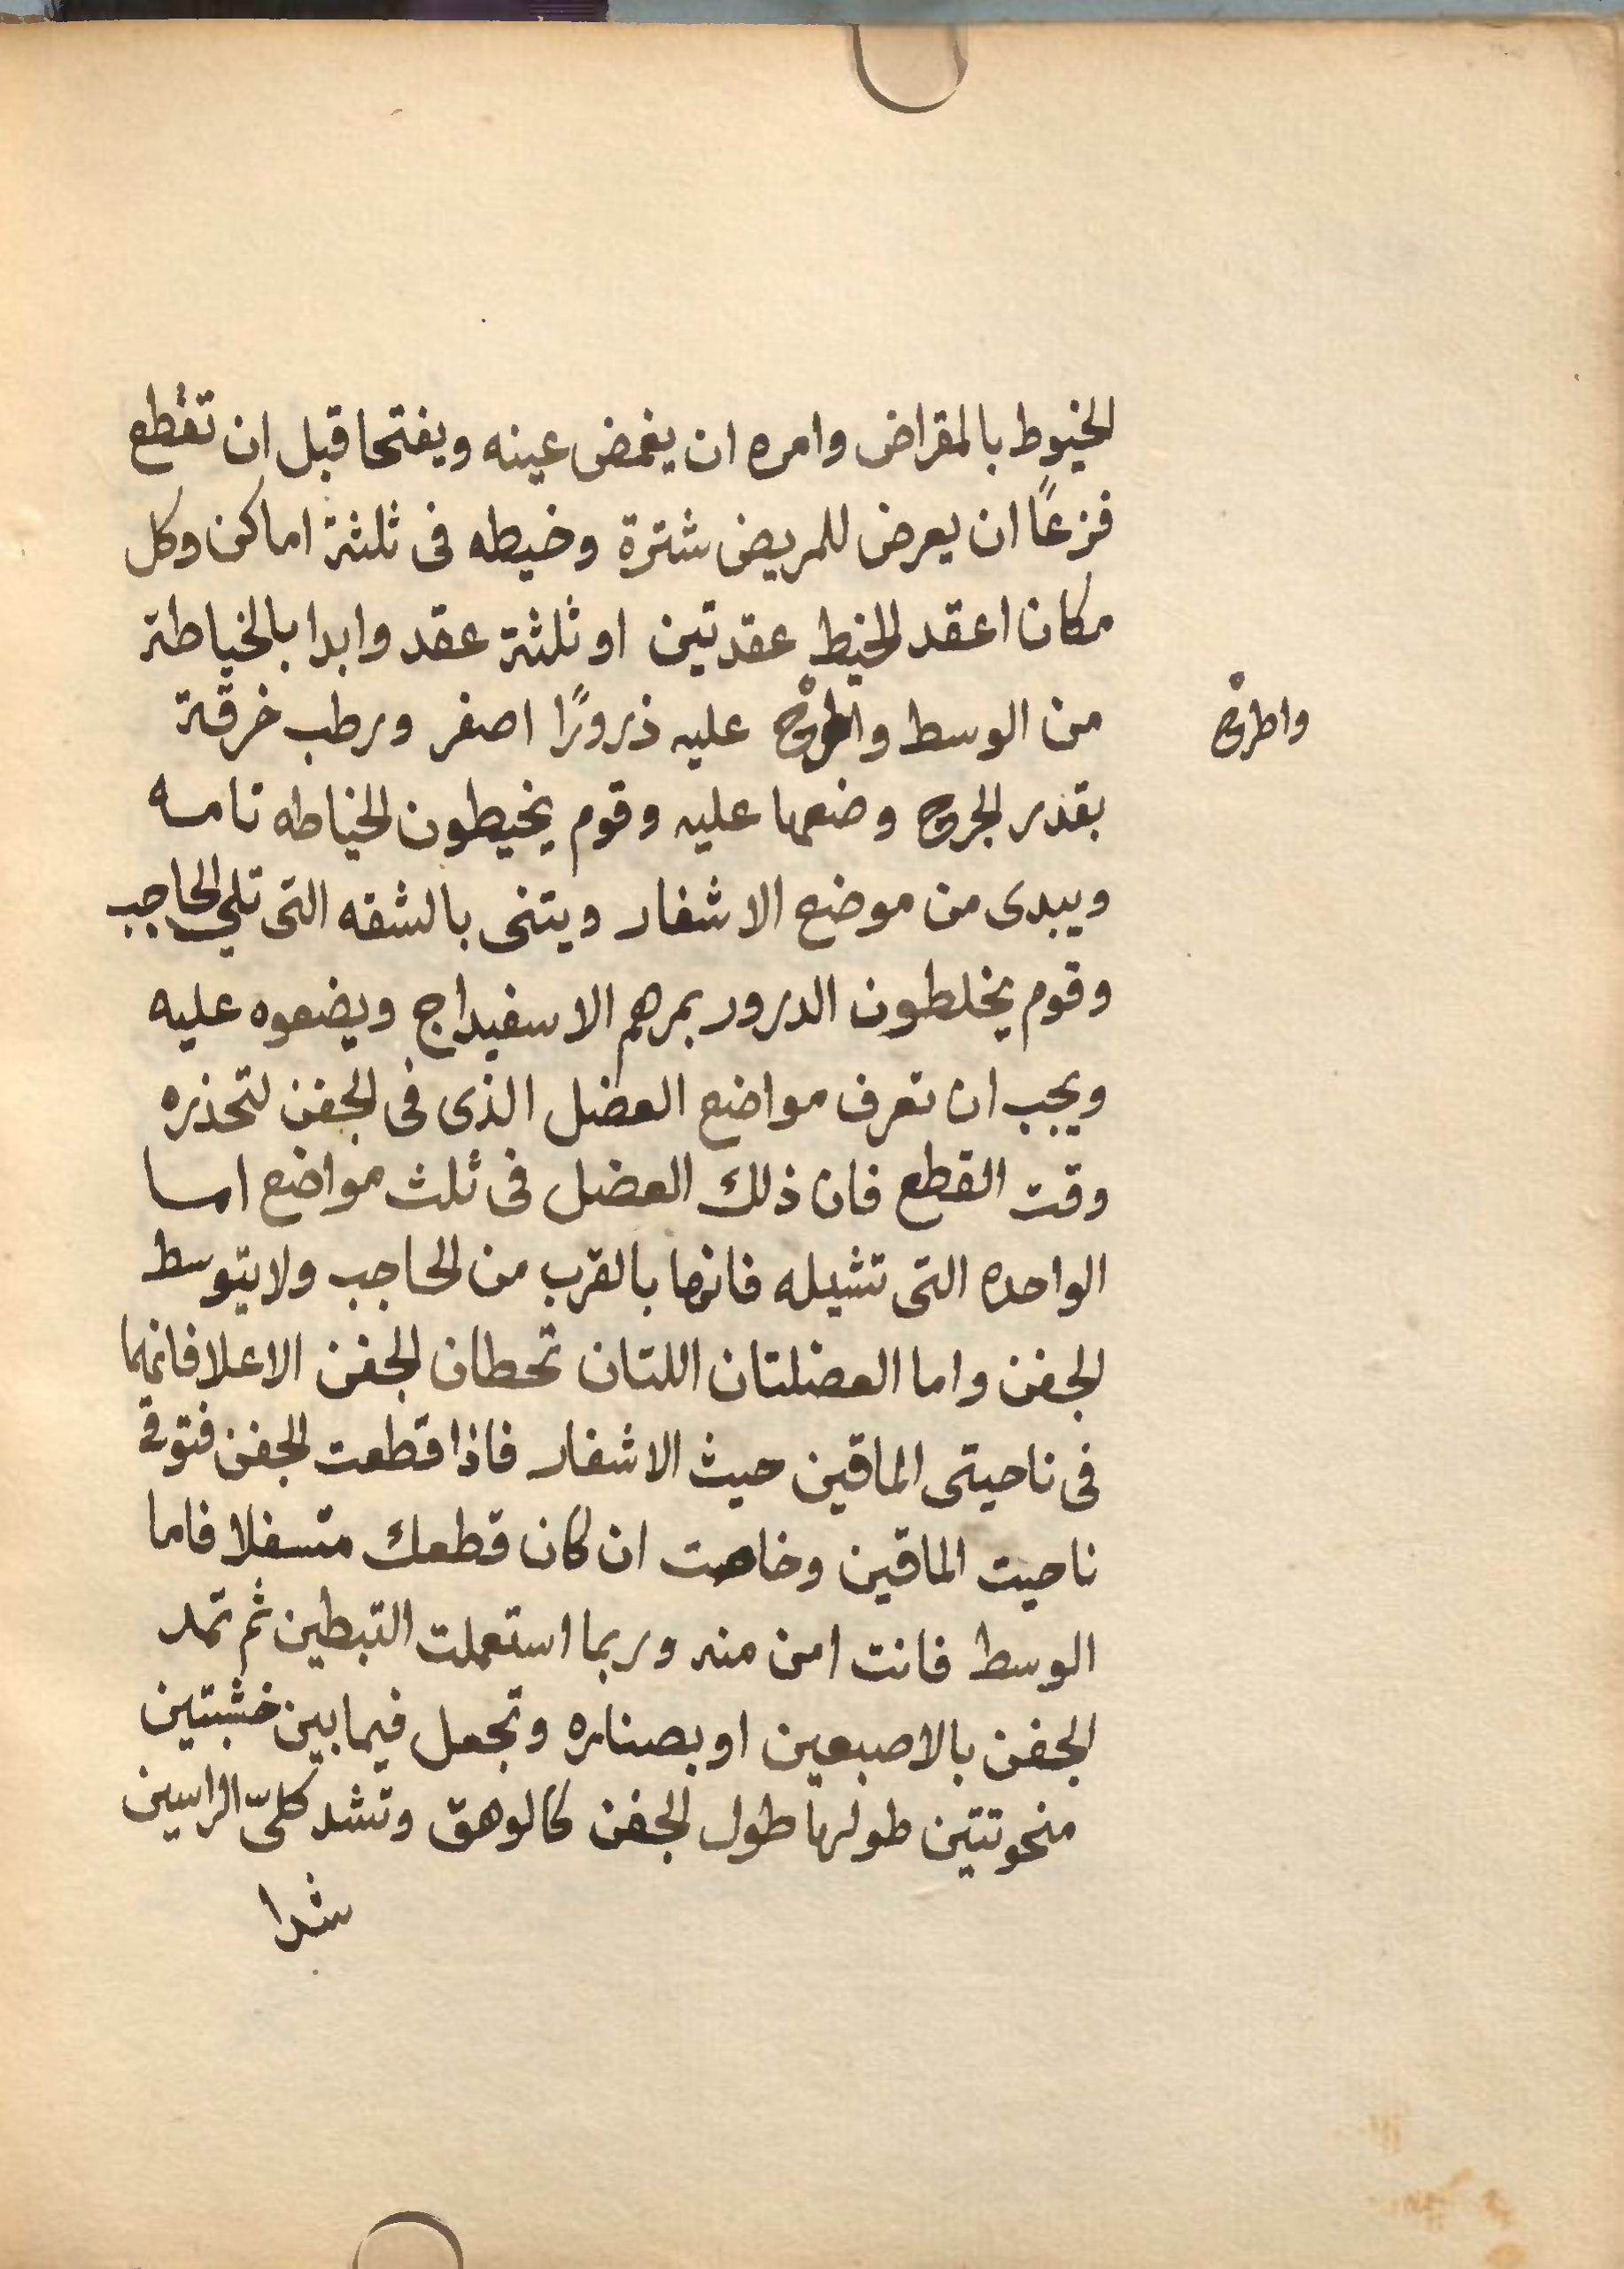 الخيوط بالمقراض وامره ان يغمض عينه ويفتحا قبل ان تقطع
فزعًا ان يعرض للمريض شترة وخيطه فى ثلثة اماكن وكل
مكان اعقد الخيط عقدتين او ثلثة عقد وابدا بالخياطة
من الوسط واطرح عليه ذرورًا اصفر ورطب خرقة
واطرح
بقدر الجرح وضعها عليه وقوم يخيطون الخياطه تامسه
ويبدى من موضع الاشفار ويتنى بالشقه التى تلى الحاجب
وقوم يخلطون الدرور بمرهم الاسفيداج ويضعوه عليه
ويجب ان تعرف مواضع العضل الذى فى الجفن لتحذره
وقت القطع فان ذلك العضل فى ثلث مواضع اما
الواحده التى تشيله فانها بالقرب من الحاجب ولا يتوسط
الجفن واما العضلتان اللتان تحطان الجفن الاعلا فانهما
فى ناحيتى الماقين حيث الاشفار فاذا قطعت الجفن فتوق
ناحيت الماقين وخاصت ان كان قطعك متسفلا فاما
الوسط فانت امن منه وربما استعملت التبطين ثم تمد
الجفن بالاصبعين او بصناره وتجعل فيما بين خشبتين
منحوتتين طولها طول الجفن كالوهق وتشد كلىّ الراسين
شدا